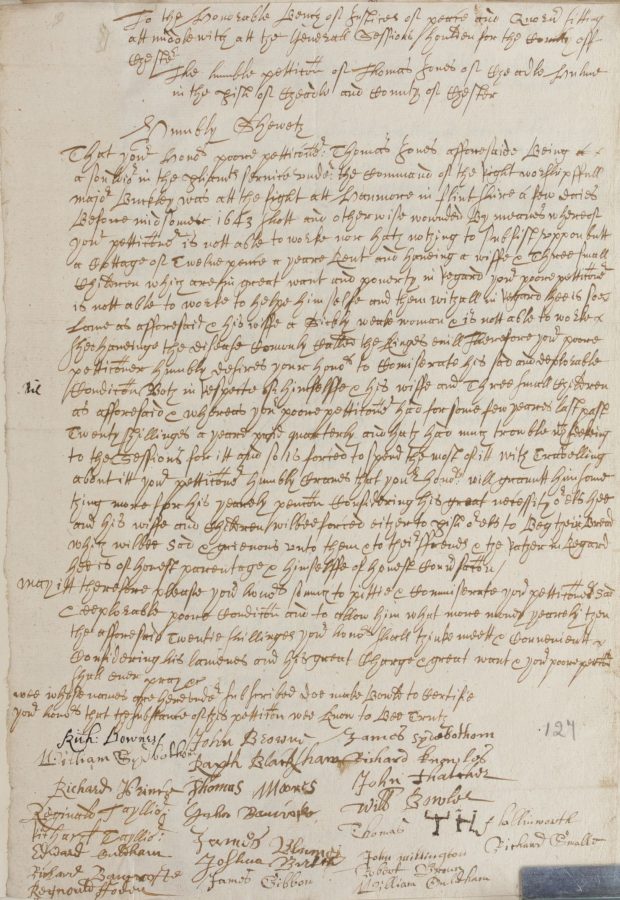 To the Honorable Bench of Justices of peace and Quorū sitting
att middlewich att the Generall Sessions houlden for the County off
Chester
The humble petticon of Thomas Jones of Cheadle Hulme
in the pish of Cheadle and County of Chester
Humbly Sheweth
That yor Honors poore petticonr Thomas Jones afforesaide Being a
a souldier in the plamts service under the Command of the right worshipffull
major Buckley was att the fight att Hanmore in flintshire a few daies
Before midsomer 1643 shott and otherwise wounded By meanes whereof
your petticonr is nott able to worke nor hath nothing to subsist uppon butt
a Cottage of Twelve pence a yeare Rent and haveing a wiffe & Three small
Children which are in great want and poverty in Regard yor poore petticonr
is nott able to worke to helpe him selfe and them withall in Regard hee is soe
Lame as afforesaid & his wiffe a Sickly weake woman & is nott able to worke
shee haveinge the disease Comonly Called the Kinges evill Therefore yor poore
petticoner Humbly desires your honors to Comiserate his sad and deplorable
Condicon Both in respecte of himselffe & his wiffe and Three small Children
as afforesaid & whereas yor poore petticonr had for some few yeares last past
Twenty shillinges a yeare paid quarterly and hath had much trouble in
to the Sessions for itt and so is forced to spend the most of itt with Travelling
about itt yor petticonr humbly Craves that yor honors will graunt him some
thing more for his yearely pencon Considering his great necessity or els hee
and his wiffe and Children wilbee forced either to pish or els to Beg their Bread
which wilbee sad & grievous unto them & to their ffreinds & the Rather in Regard
hee is of honest parentage & himselffe of honest Conversacon
May itt therefore please yor honors so much to pittie & Commiserate yor petticonrs sad
& deplorable poore Condicon and to allow him what more money yearely then
the afforesaid Twentie shillinges yor honors shall thinke meett & Convenient
Considering his lamenes and his great Charge & great want & yor poore petticonr
shall ever pray &c
wee whose names are hereunder subscribed doe make Bould to Certifie
yor honors that the substance of this petticon wee know to Bee Truth
127
Rich: Downes John Browne James Sydebothom
William Sydbothom Raph Blackshaw Richard Knowles
Richard Prince Thomas Moores John Thatcher
Reginald Tayllior John Will Bowler
Richart Tayllior James Thomas TH hollinworth
Edward Ouldham Joshua Richard Smalle
Richard Bancrofte James Gibbon John
Reynould Robert
William Ouldham